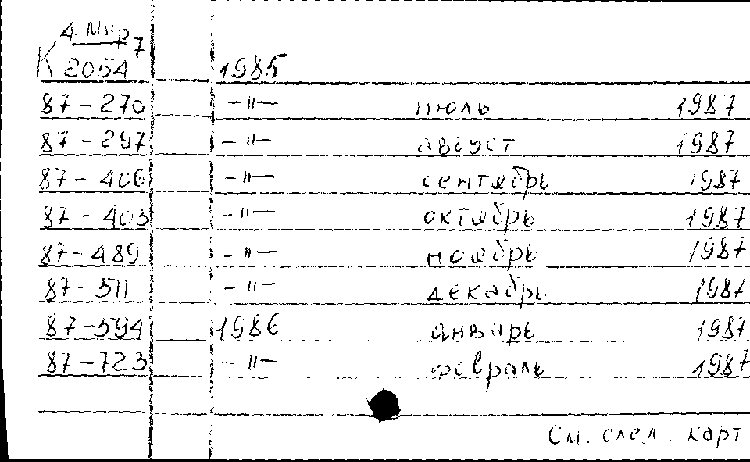 4. Мир 7
К 2054 1985
87-270 -"- июль 1987
87-297 -"- август 1987
87-406 -"- сентябрь 1987
87-403 -"- октябрь 1987
87-489 -"- ноябрь 1987
87-511 -"- декабрь 1987
87-594 1986 январь 1987
87-723 -"- февраль 1987
См. след. карт